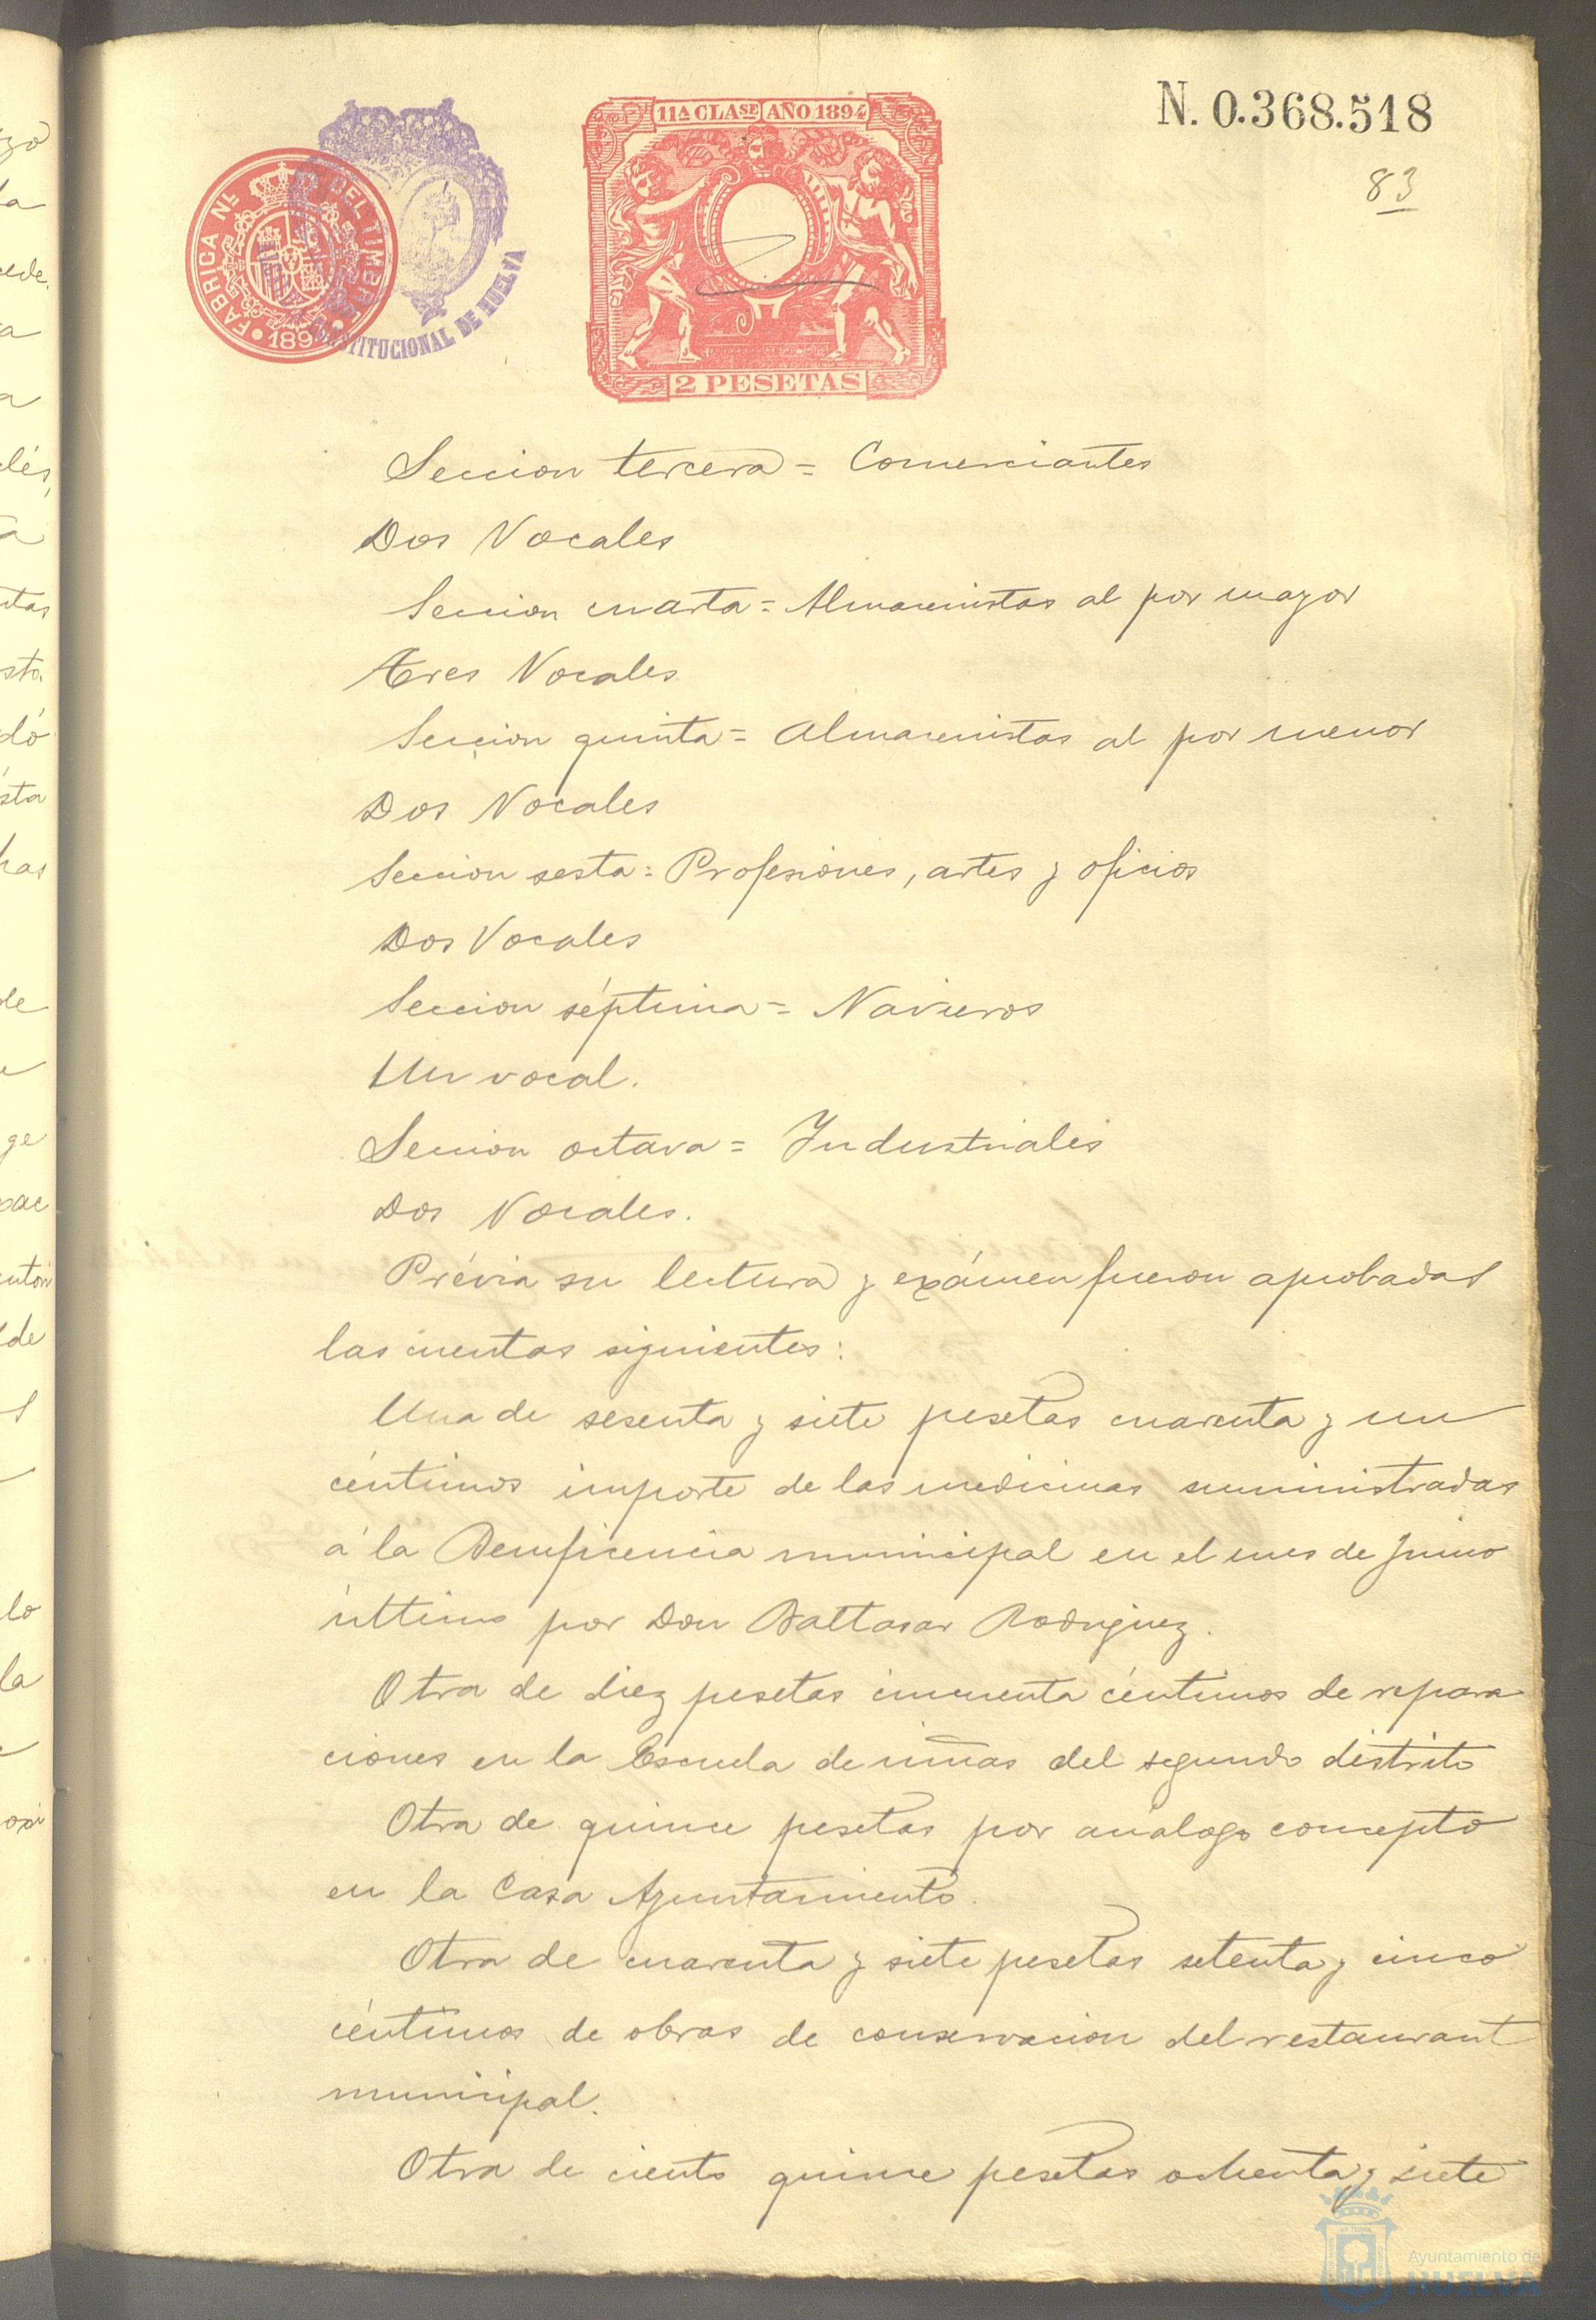 N. 0.368.518
83
11ª CLASE AÑO 1894
FABRICA Nᴸ DEL TIMBRE
189
CONSTITUCIONAL DE HUELVA
2 PESETAS
Seccion tercera = Comerciantes
Dos Vocales
Seccion cuarta = Almacenistas al por mayor
Tres Vocales
Seccion quinta = Almacenistas al por menor
Dos Vocales
Seccion sesta = Profesiones, artes y oficios
Dos Vocales
Seccion séptima = Navieros
Un vocal.
Seccion octava = Industriales
Dos Vocales.
Prévia su lectura y exámen fueron aprobadas
las cuentas siguientes:
Una de sesenta y siete pesetas cuarenta y un
céntimos importe de las medicinas suministradas
á la Beneficencia municipal en el mes de Junio
último por Don Baltasar Rodriguez.
Otra de diez pesetas cincuenta céntimos de repara
ciones en la Escuela de niñas del segundo distrito
Otra de quince pesetas por análogo concepto
en la Casa Ayuntamiento.
Otra de cuarenta y siete pesetas setenta y cinco
céntimos de obras de conservacion del restaurant
municipal.
Otra de ciento quince pesetas ochenta y siete
Ayuntamiento de
HUELVA